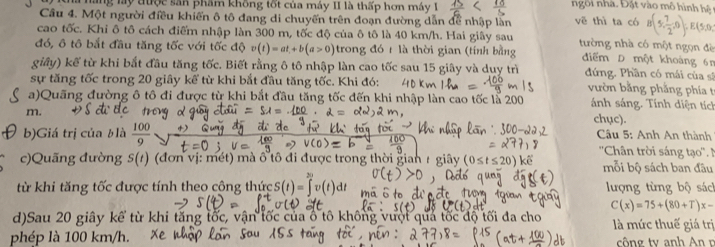 lấy được sản phẩm không tốt của máy II là thấp hơn máy I
Câu 4. Một người điều khiển ô tô đang di chuyển trên đoạn đường dẫn để nhập làn
cao tốc. Khi ô tô cách điểm nhập làn 300 m, tốc độ của ô tô là 40 km/h. Hai giây sau
đó, ô tô bắt đầu tăng tốc với tốc độ v(t) = at + b (a > 0) trong đó t là thời gian (tính bằng
giây) kể từ khi bắt đầu tăng tốc. Biết rằng ô tô nhập làn cao tốc sau 15 giây và duy trì
sự tăng tốc trong 20 giây kể từ khi bắt đầu tăng tốc. Khi đó: 40 km/h = 100/9 m/s
S a)Quãng đường ô tô đi được từ khi bắt đầu tăng tốc đến khi nhập làn cao tốc là 200
m.
b)Giá trị của b là 100/9
t=0; v = 100/9 → v(0) = b = 100/9
c)Quãng đường S(t) (đơn vị: mét) mà ô tô đi được trong thời gian t giây (0 ≤ t ≤ 20) kể
từ khi tăng tốc được tính theo công thức S(t) = ∫v(t)dt
d)Sau 20 giây kể từ khi tăng tốc, vận tốc của ô tô không vượt quá tốc độ tối đa cho
phép là 100 km/h. xe nhập làn sau 15s tăng tốc, nên: 277,8 = ∫15 (at + 100/9) dt
ngôi nhà. Đặt vào mô hình hệ
vẽ thì ta có
tường nhà có một ngọn đè
điểm D một khoảng 6m
đứng. Phần có mái của s
vườn bằng phẳng phía t
ánh sáng. Tính diện tích
chục).
Câu 5: Anh An thành
"Chân trời sáng tạo".
mỗi bộ sách ban đầu
lượng từng bộ sách
C(x) = 75 + (80 + T)x −
là mức thuế giá trị
công ty anh An